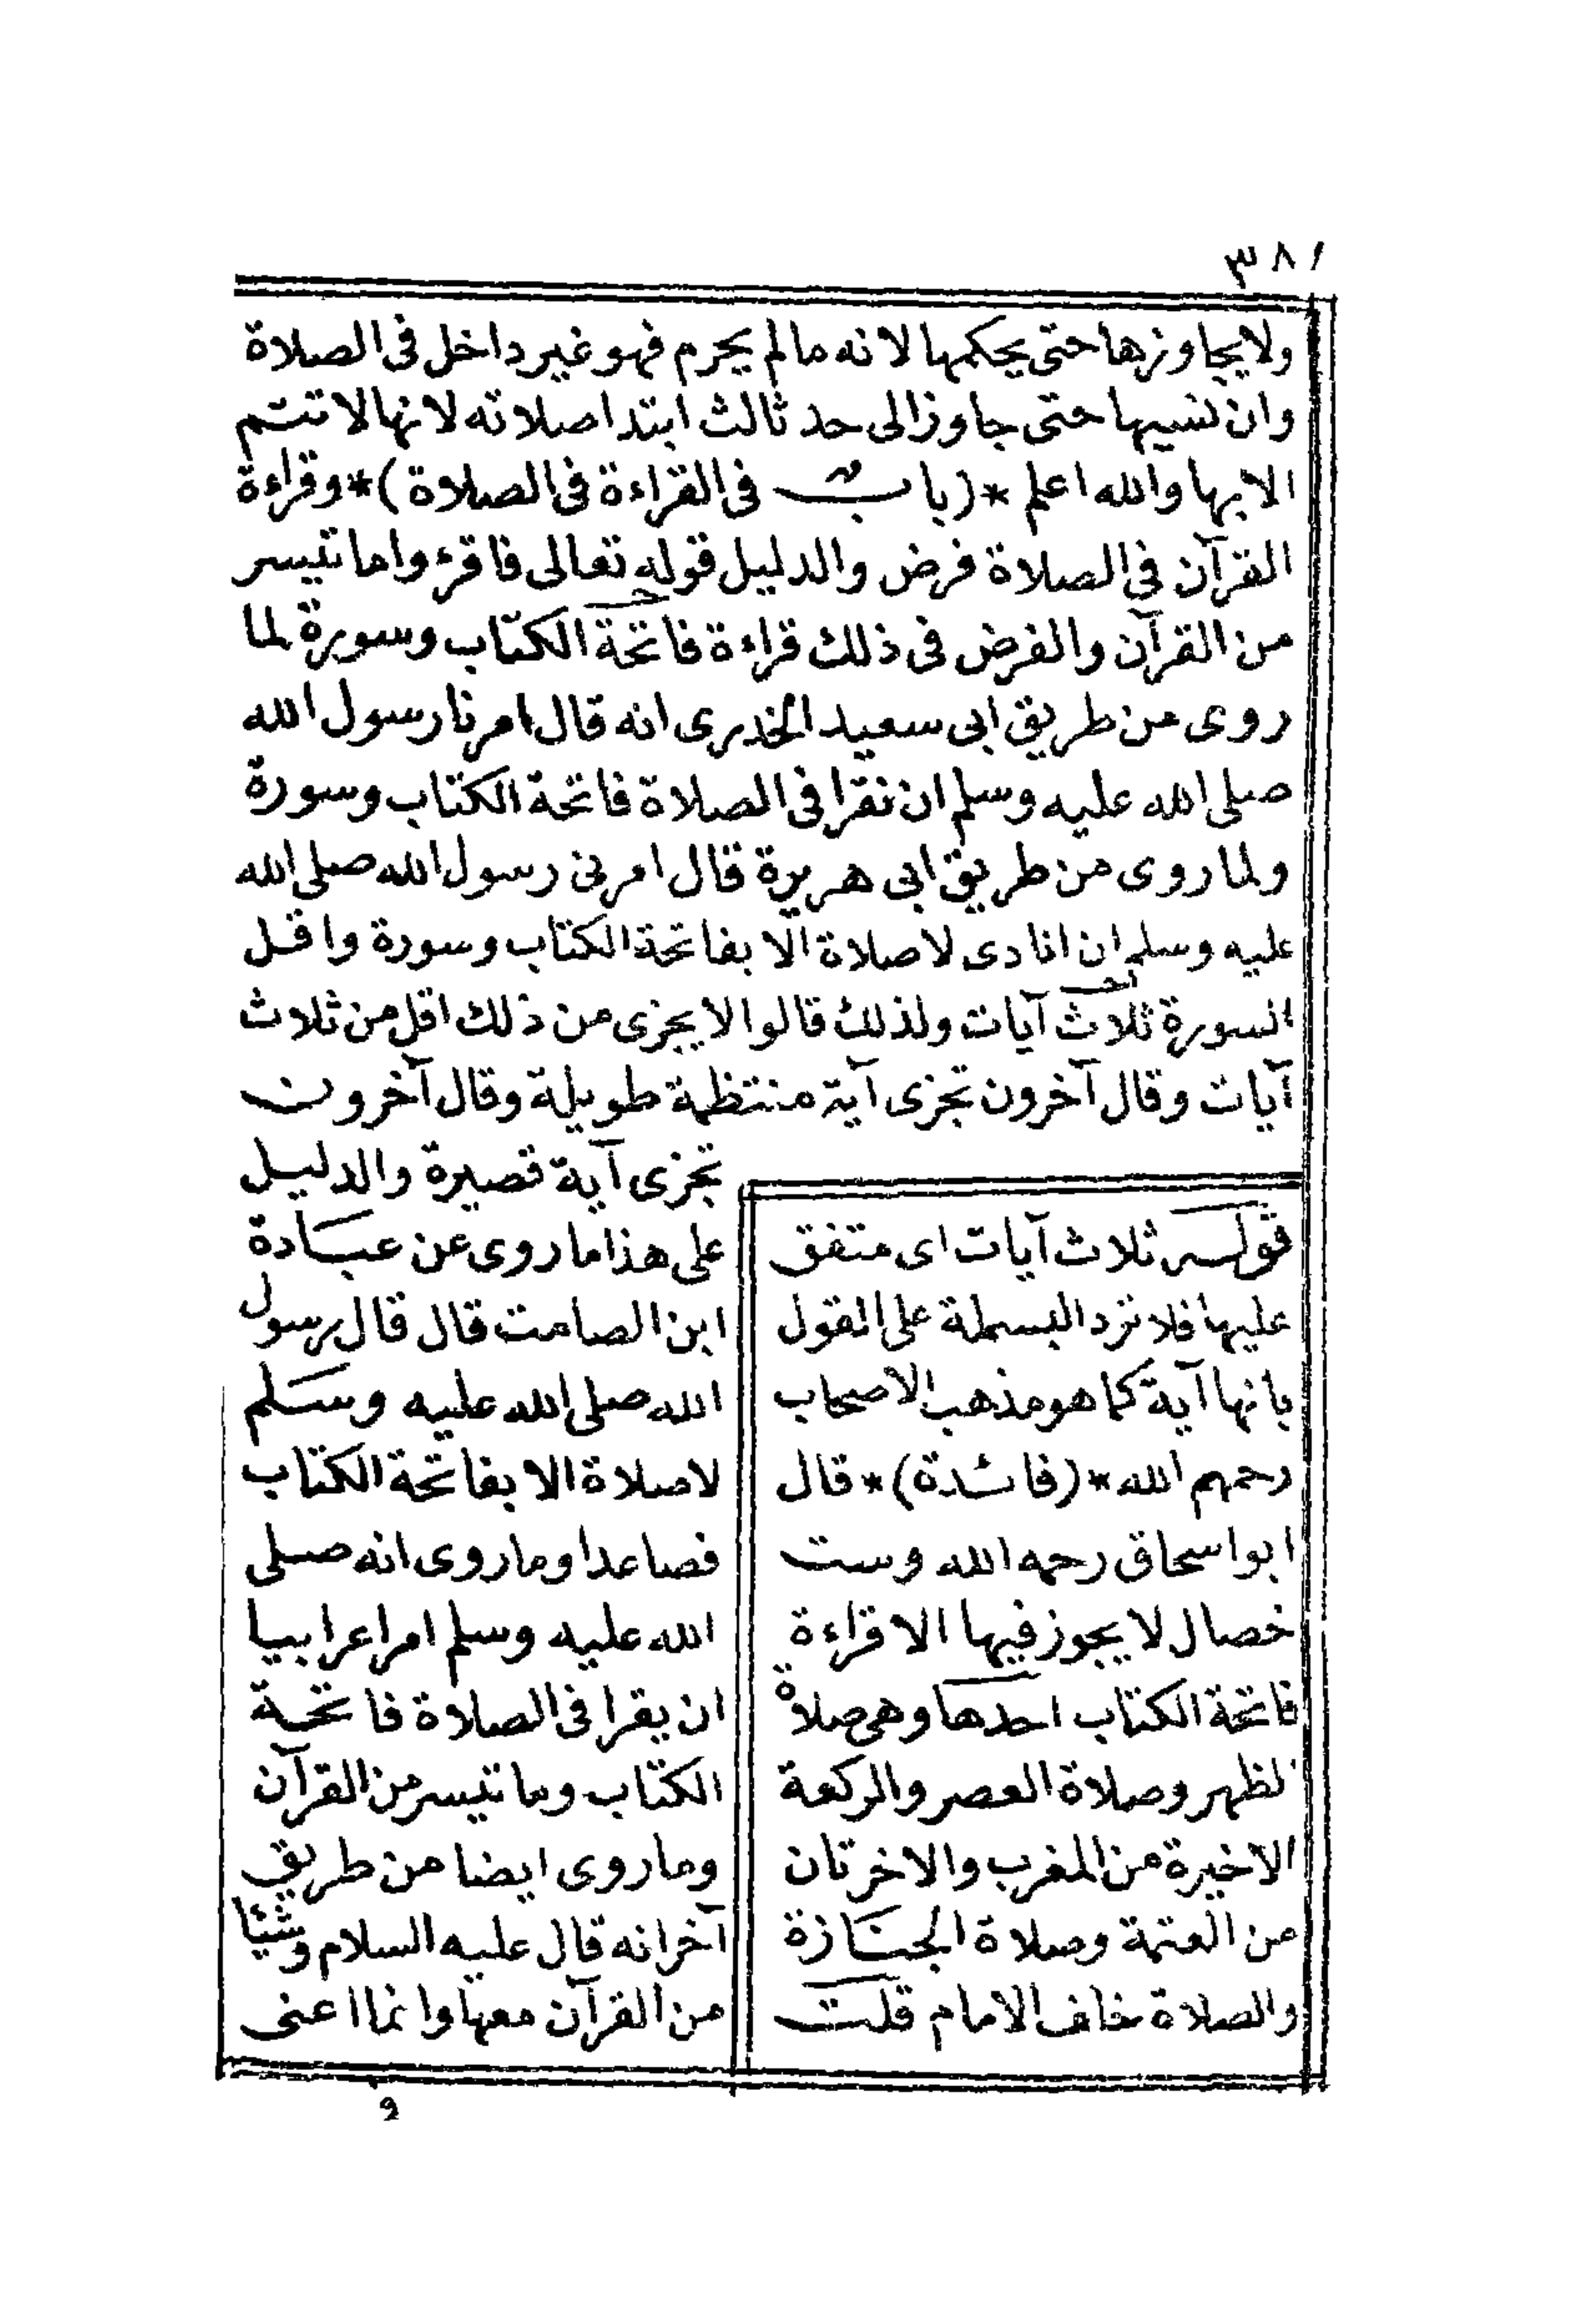 ٣٨١
ولا يجاوزها حتى يحكمها لانه ما لم يحرم فهو غير داخل فى الصلاة
وان نسيها حتى جاوز الى حد ثالث ابتدا صلاته لانها لا تتم
الا بها والله اعلم *(باب فى القراءة فى الصلاة)* وقراءة
القرآن فى الصلاة فرض والدليل قوله تعالى فاقرءوا ما تيسر
من القرآن والفرض فى ذلك قراءة فاتحة الكتاب وسورة لما
روى من طريق ابى سعيد الخدرى انه قال امرنا رسول الله
صلى الله عليه وسلم ان نقرا فى الصلاة فاتحة الكتاب وسورة
ولما روى من طريق ابى هريرة قال امرنى رسول الله صلى الله
عليه وسلم ان انادى لا صلاة الا بفاتحة الكتاب وسورة واقل
السورة ثلاث آيات ولذلك قالوا لا يجزى من ذلك اقل من ثلاث
آيات وقال آخرون تجزى آية منتظمة طويلة وقال آخرون
تجزى آية قصيرة والدليل
على هذا ما روى عن عبادة
ابن الصامت قال قال رسول
الله صلى الله عليه وسلم
لا صلاة الا بفاتحة الكتاب
فصاعدا وما روى انه صلى
الله عليه وسلم امر اعرابيا
ان يقرا فى الصلاة فاتحة
الكتاب وما تيسر من القرآن
وما روى ايضا من طريق
آخر انه قال عليه السلام وشيئا
من القرآن معها وانما اعنى
قوله ثلاث آيات اى متفق
عليها فلا ترد البسملة على القول
بانها آية كما هو مذهب الاصحاب
رحمهم الله *(فائدة)* قال
ابو اسحاق رحمه الله وست
خصال لا يجوز فيها الا قراءة
فاتحة الكتاب احدها وهى صلاة
لظهر وصلاة العصر والركعة
الاخيرة من المغرب والاخرتان
من العتمة وصلاة الجنازة
والصلاة خلف الامام قلت
و